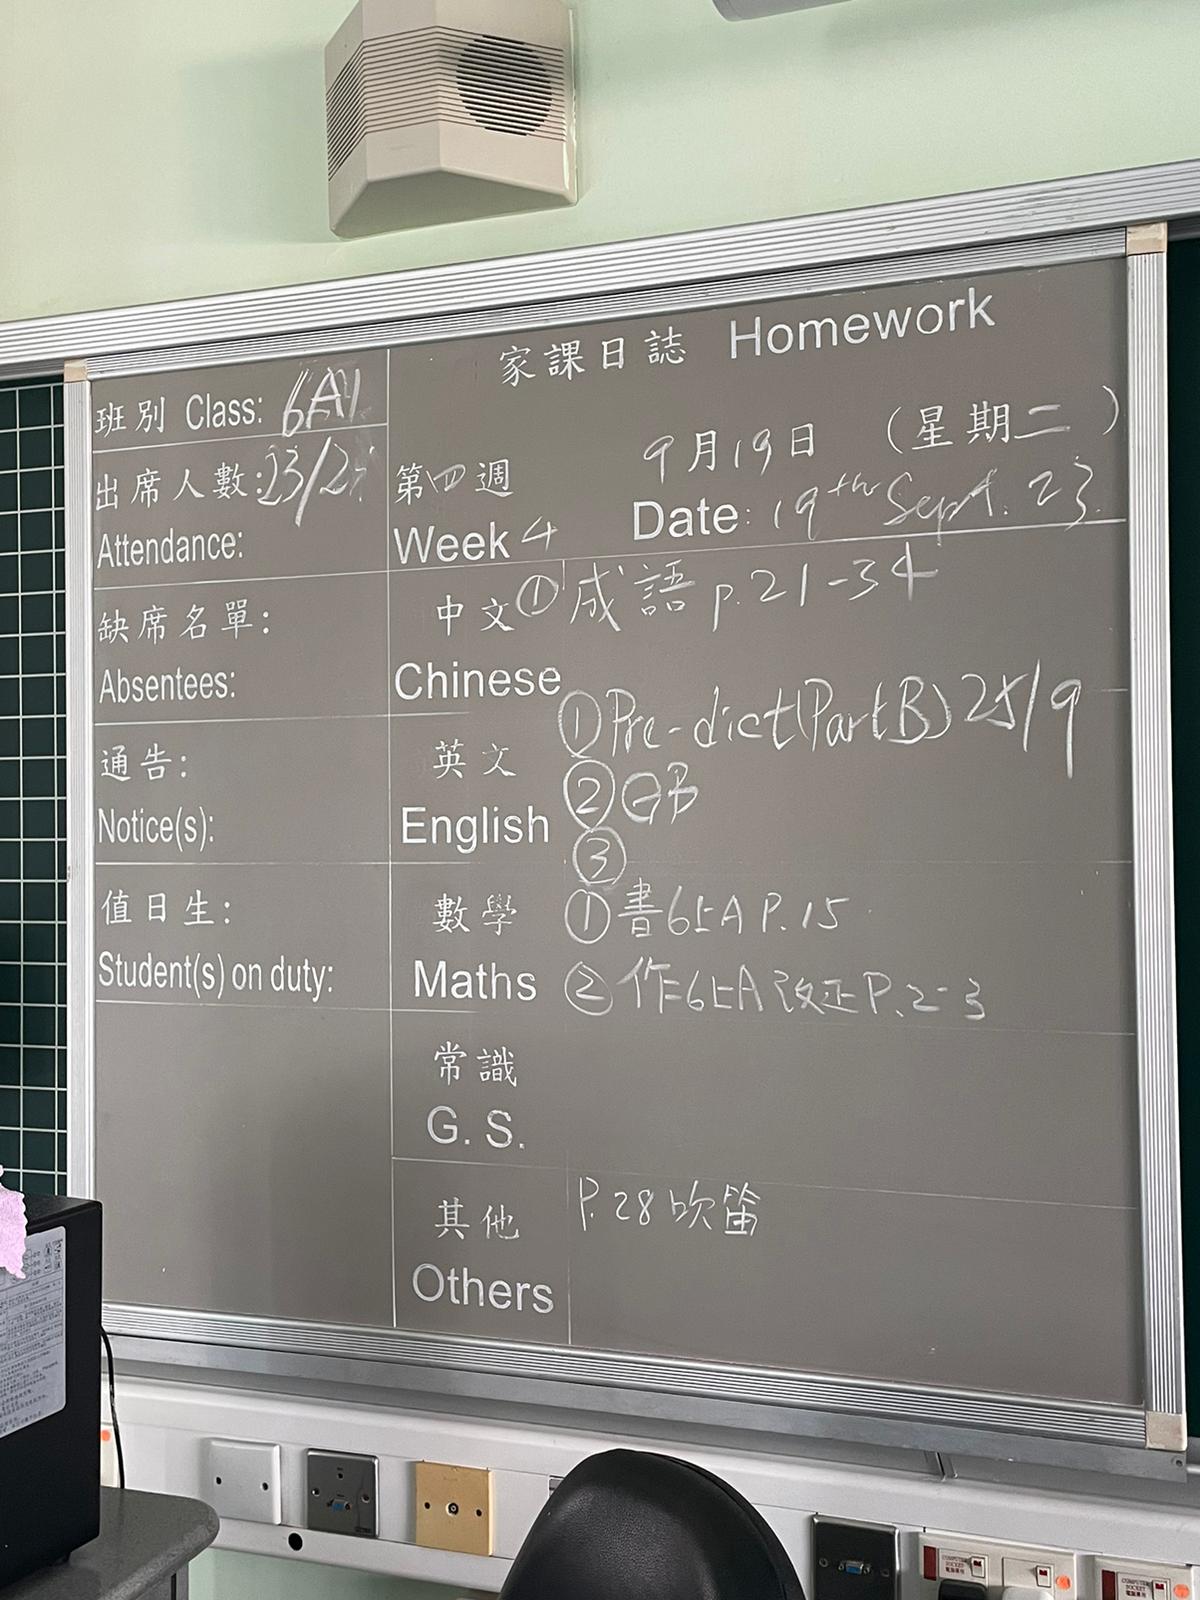 家課日誌 Homework
班別 Class: 6A1
出席人數: 23/
Attendance:
第四週
Week 4
9月19日 (星期二)
Date: 19th Sept. 23.
缺席名單:
Absentees:
中文
Chinese
① 成語 p.21-34
通告:
Notice(s):
英文
English
① Pre-dict(Part B) 25/9
② GB
③
值日生:
Student(s) on duty:
數學
Maths
① 書6上A P.15
② 作6上A 改正 P.2-3
常識
G. S.
其他
Others
P.28 吹笛